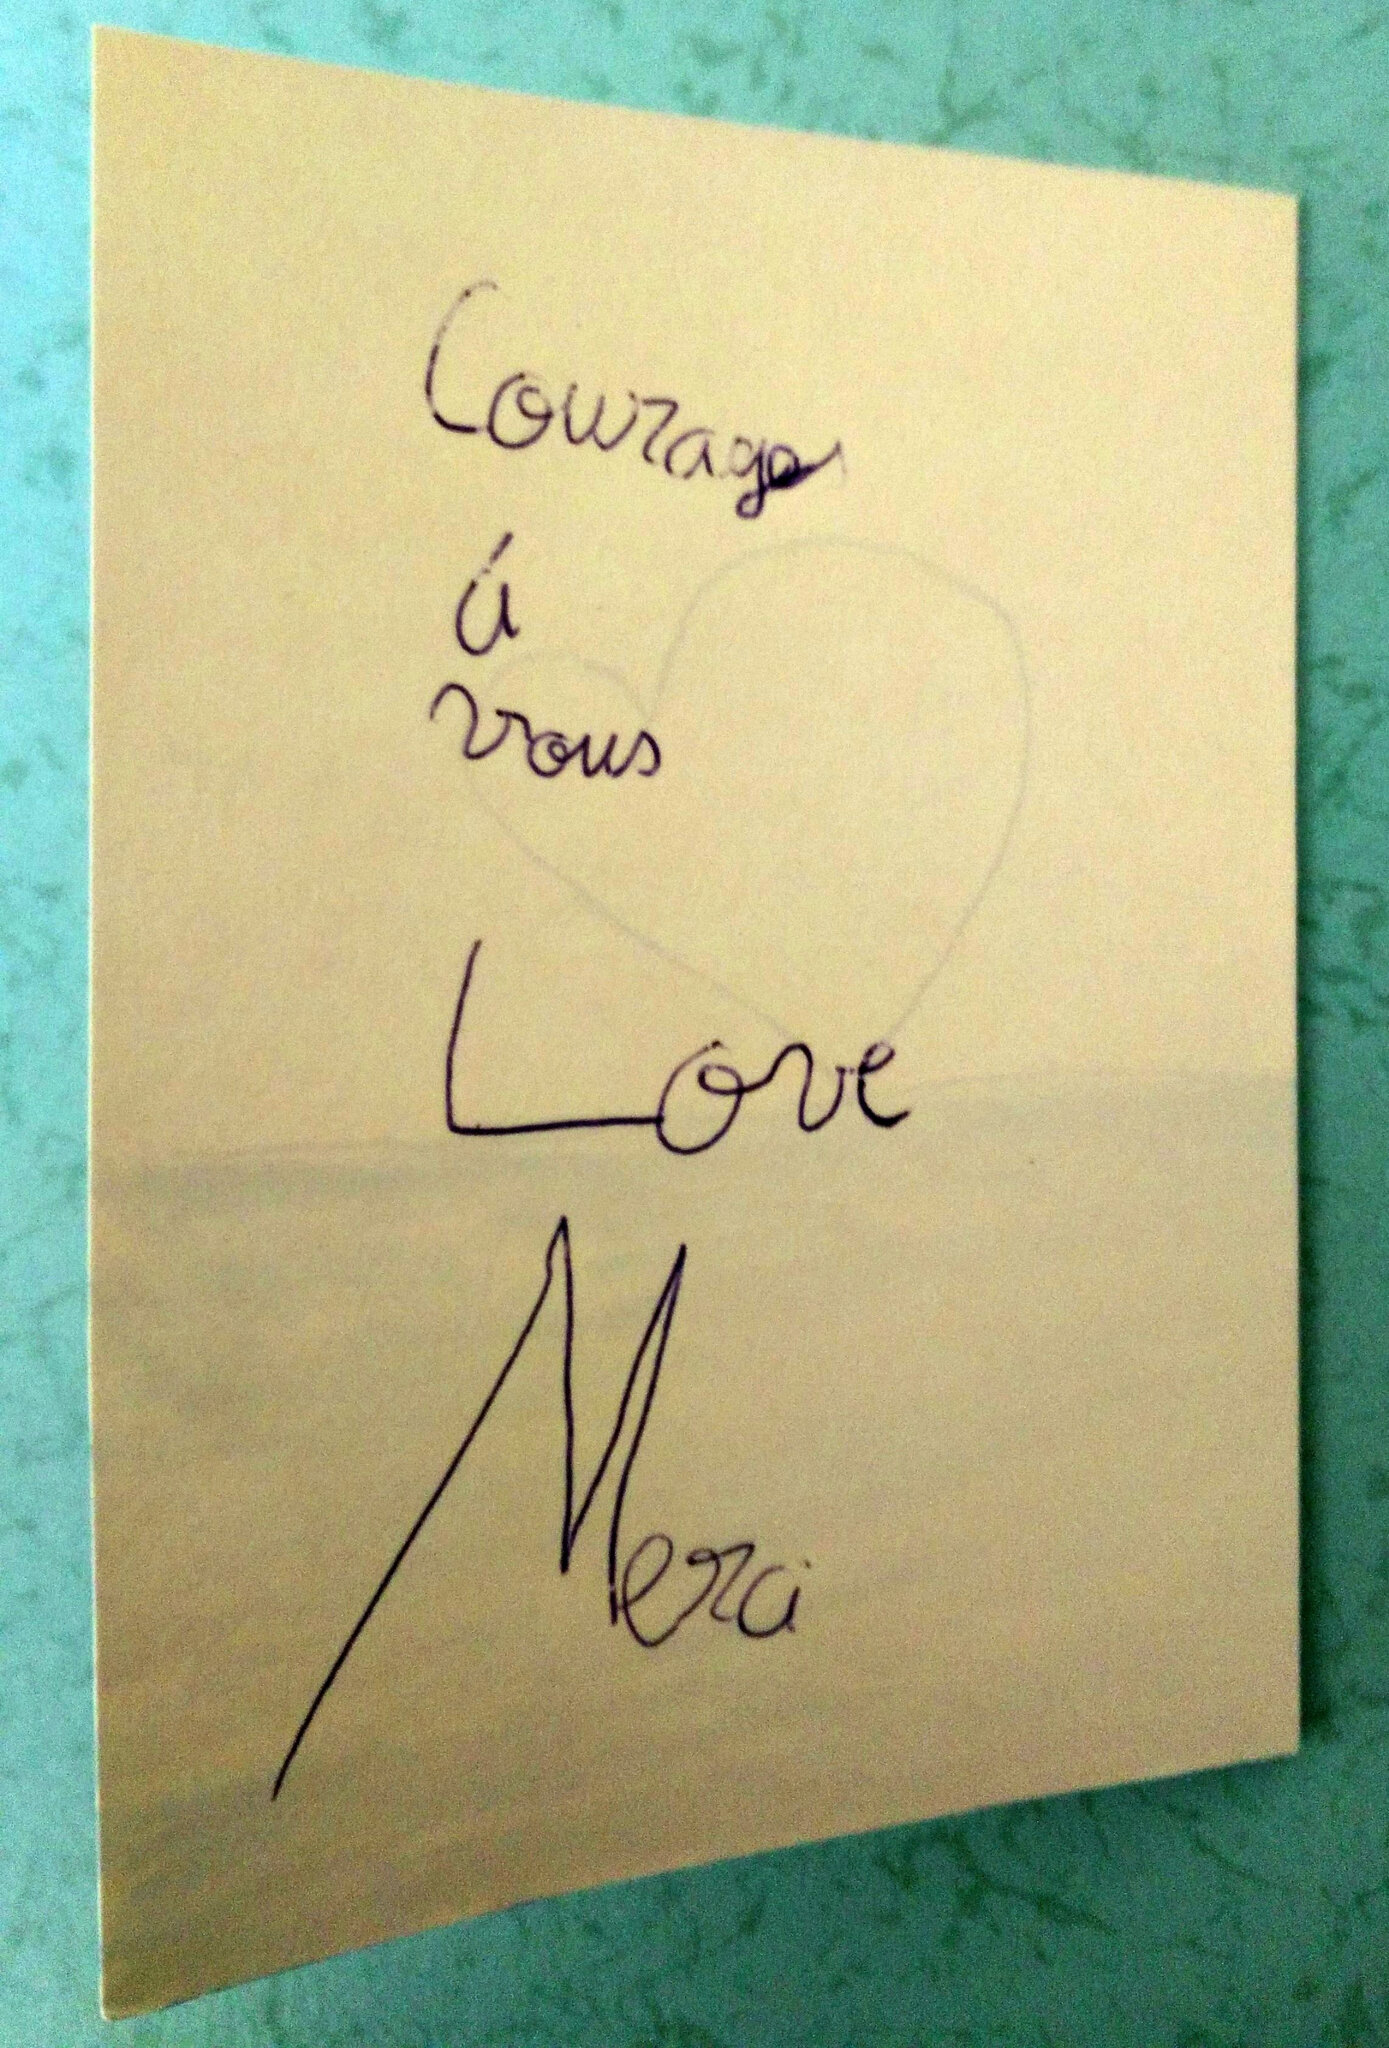 Courage
à
vous
Love
Merci